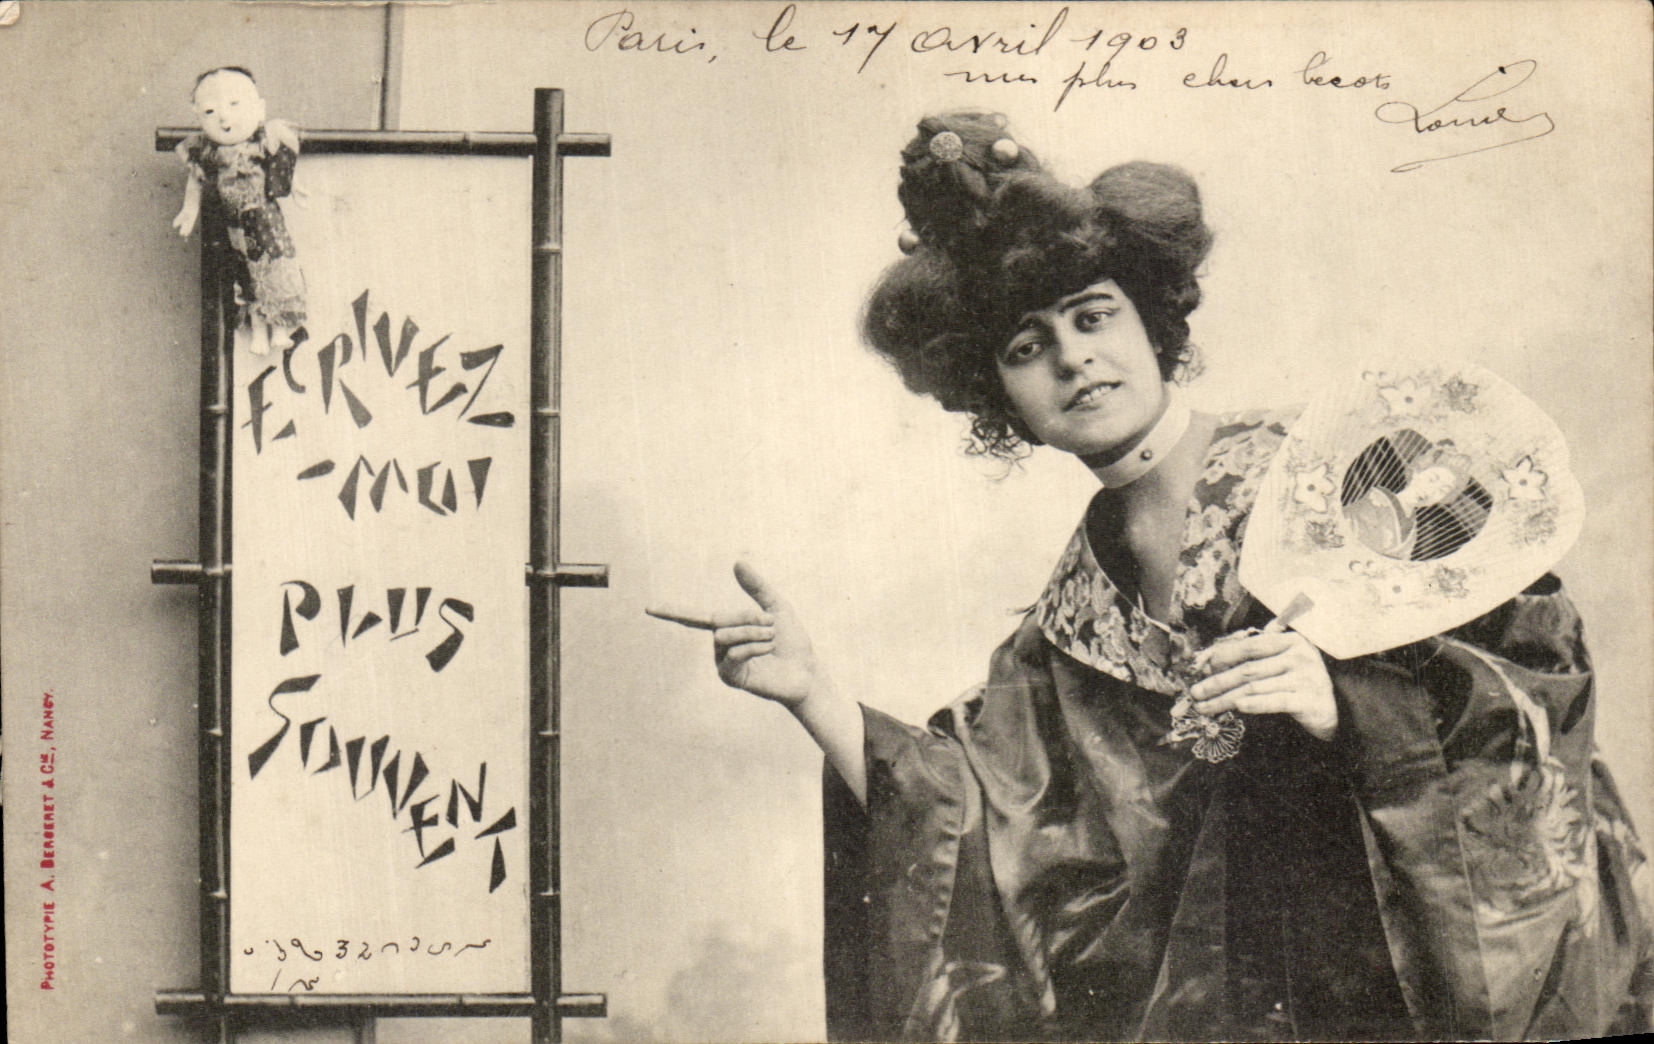 Paris, le 17 avril 1903
mes plus chers bécots
ECRIVEZ
-MOI
PLUS
SOUVENT
PHOTOTYPIE A. BERGERET & Cie, NANCY.